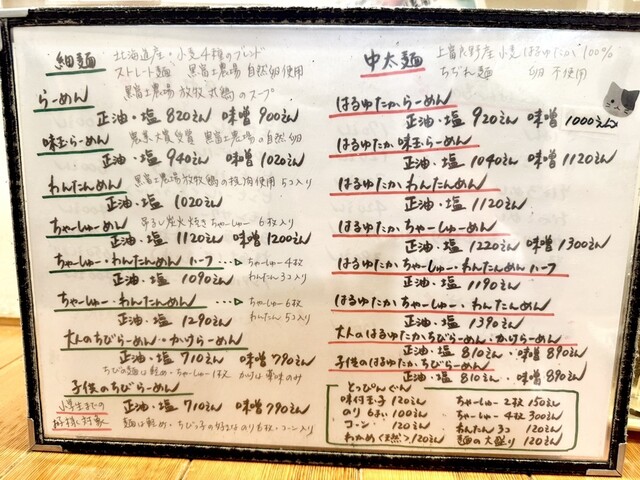 細麺 北海道産・小麦4種のブレンド
ストレート麺 黒富士農場 自然卵使用
らーめん 黒富士農場 放牧 丸鶏のスープ
正油・塩 820えん 味噌 900えん
味玉らーめん 農業大賞受賞 黒富士農場の自然卵
正油・塩 940えん 味噌 1020えん
わんたんめん 黒富士農場放牧鶏の挽肉使用 5コ入り
正油・塩 1020えん
ちゃーしゅーめん 吊るし炭火焼き ちゃーしゅー 6枚入り
正油・塩 1120えん 味噌 1200えん
ちゃーしゅー・わんたんめん ハーフ ちゃーしゅー4枚
正油・塩 1090えん わんたん3コ入り
ちゃーしゅー・わんたんめん ちゃーしゅー6枚
正油・塩 1290えん わんたん5コ入り
大人のちびらーめん・かけらーめん
正油・塩 710えん 味噌 790えん
ちびの麺は軽め・ちゃーしゅー1枚 かけは薬味のみ
子供のちびらーめん
小学生までの 正油・塩 710えん 味噌 790えん
お子様対象 麺は軽め・ちびっ子の好きなのり6枚・コーン入り
中太麺 上富良野産 小麦はるゆたか 100%
ちぢれ麺 卵 不使用
はるゆたからーめん
正油・塩 920えん 味噌 1000えん
はるゆたか 味玉らーめん
正油・塩 1040えん 味噌 1120えん
はるゆたか わんたんめん
正油・塩 1120えん
はるゆたか ちゃーしゅーめん
正油・塩 1220えん 味噌 1300えん
はるゆたか ちゃーしゅー・わんたんめん ハーフ
正油・塩 1190えん
はるゆたか ちゃーしゅー・わんたんめん
正油・塩 1390えん
大人のはるゆたかちびらーめん・かけらーめん
正油・塩 810えん・味噌 890えん
子供のはるゆたか ちびらーめん
正油・塩 810えん・味噌 890えん
とっぴんぐ
味付玉子 120えん ちゃーしゅー 2枚 150えん
のり 6まい 100えん ちゃーしゅー 4枚 300えん
コーン 120えん わんたん 3コ 120えん
わかめ〈天然〉 120えん 麺の大盛り 120えん